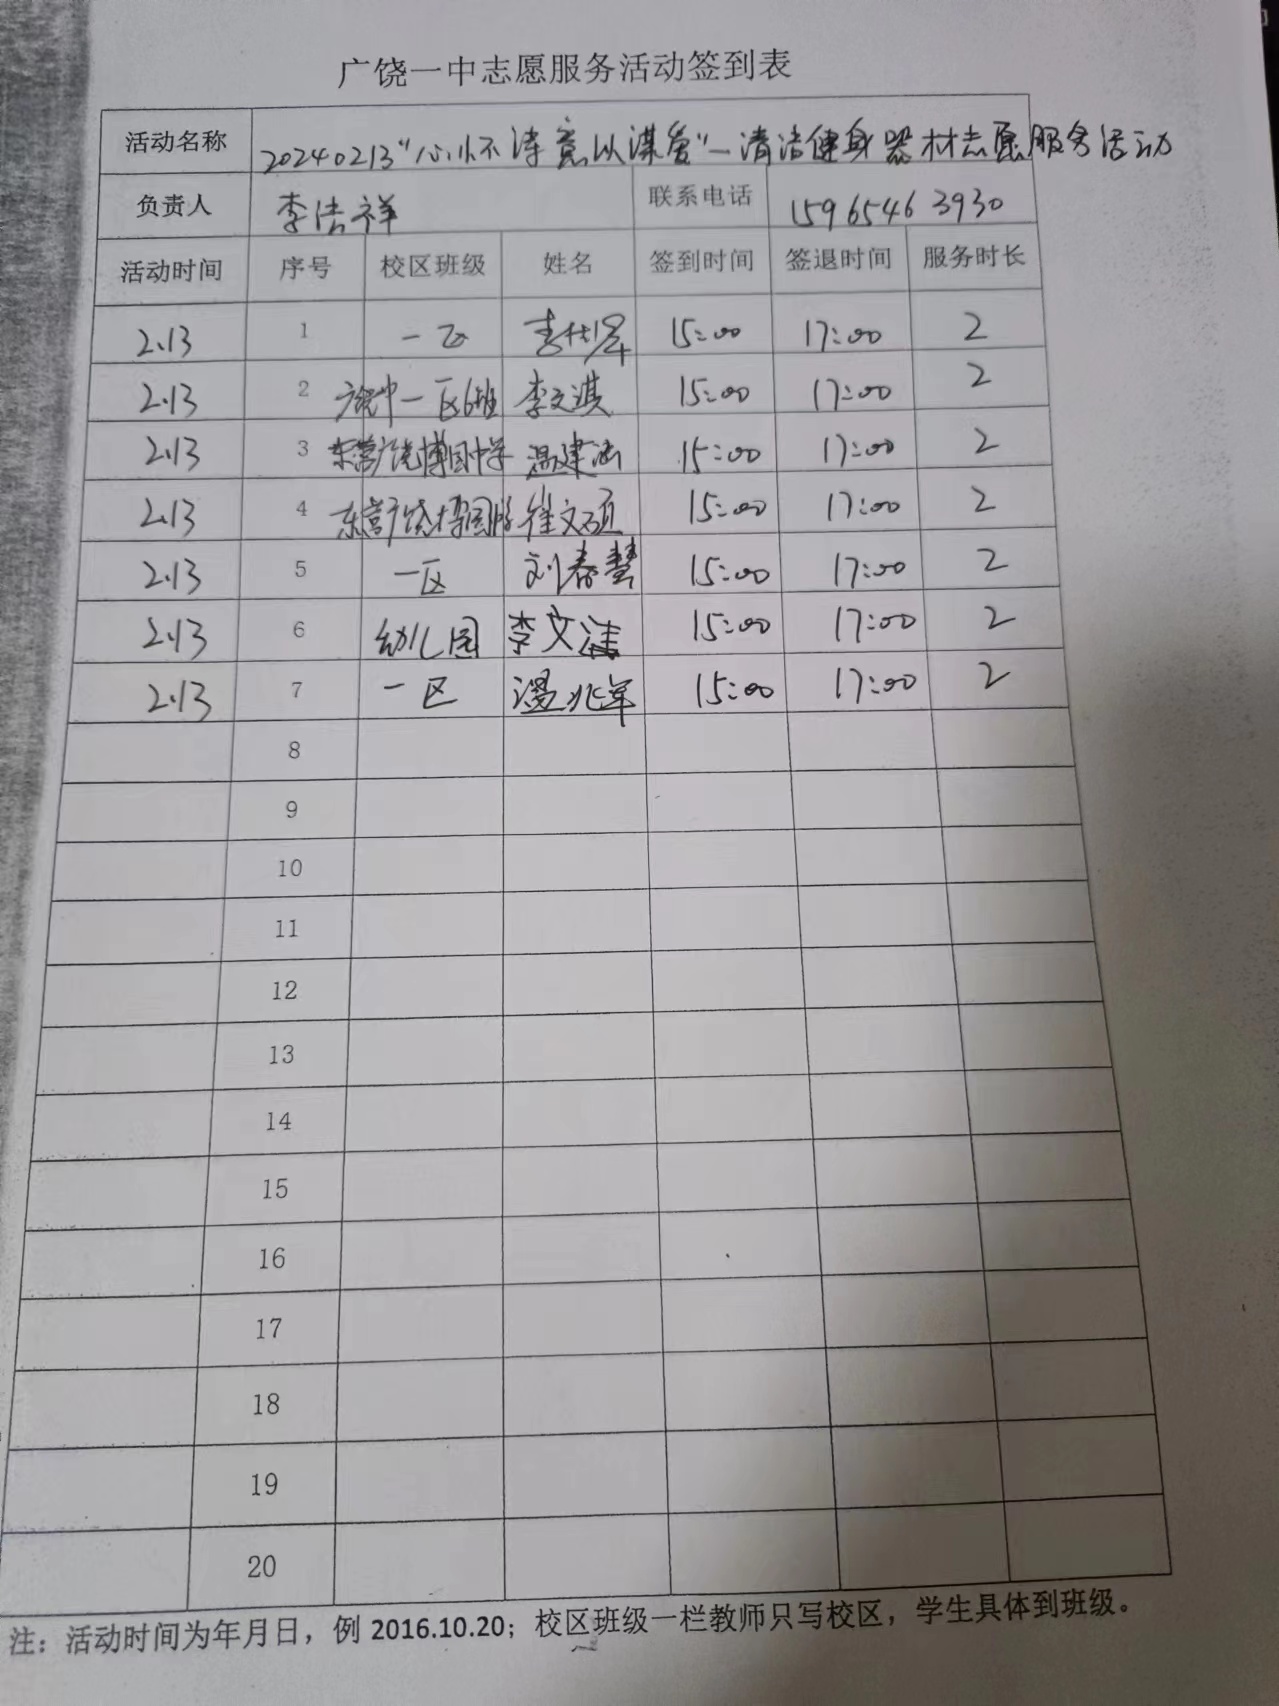 广饶一中志愿服务活动签到表
活动名称 20240213“心怀诗意以谋爱”—清洁健身器材志愿服务活动
负责人 李洁祥 联系电话 15965463930
活动时间 序号 校区班级 姓名 签到时间 签退时间 服务时长
2.13 1 一区 15:00 17:00 2
2.13 2 一区6班 李文淇 15:00 17:00 2
2.13 3 东营广饶博园中学 温建 15:00 17:00 2
2.13 4 东营广饶博园 徐文硕 15:00 17:00 2
2.13 5 一区 刘春慧 15:00 17:00 2
2.13 6 幼儿园 李文涛 15:00 17:00 2
2.13 7 一区 温兆军 15:00 17:00 2
8
9
10
11
12
13
14
15
16
17
18
19
20
注：活动时间为年月日，例 2016.10.20；校区班级一栏教师只写校区，学生具体到班级。